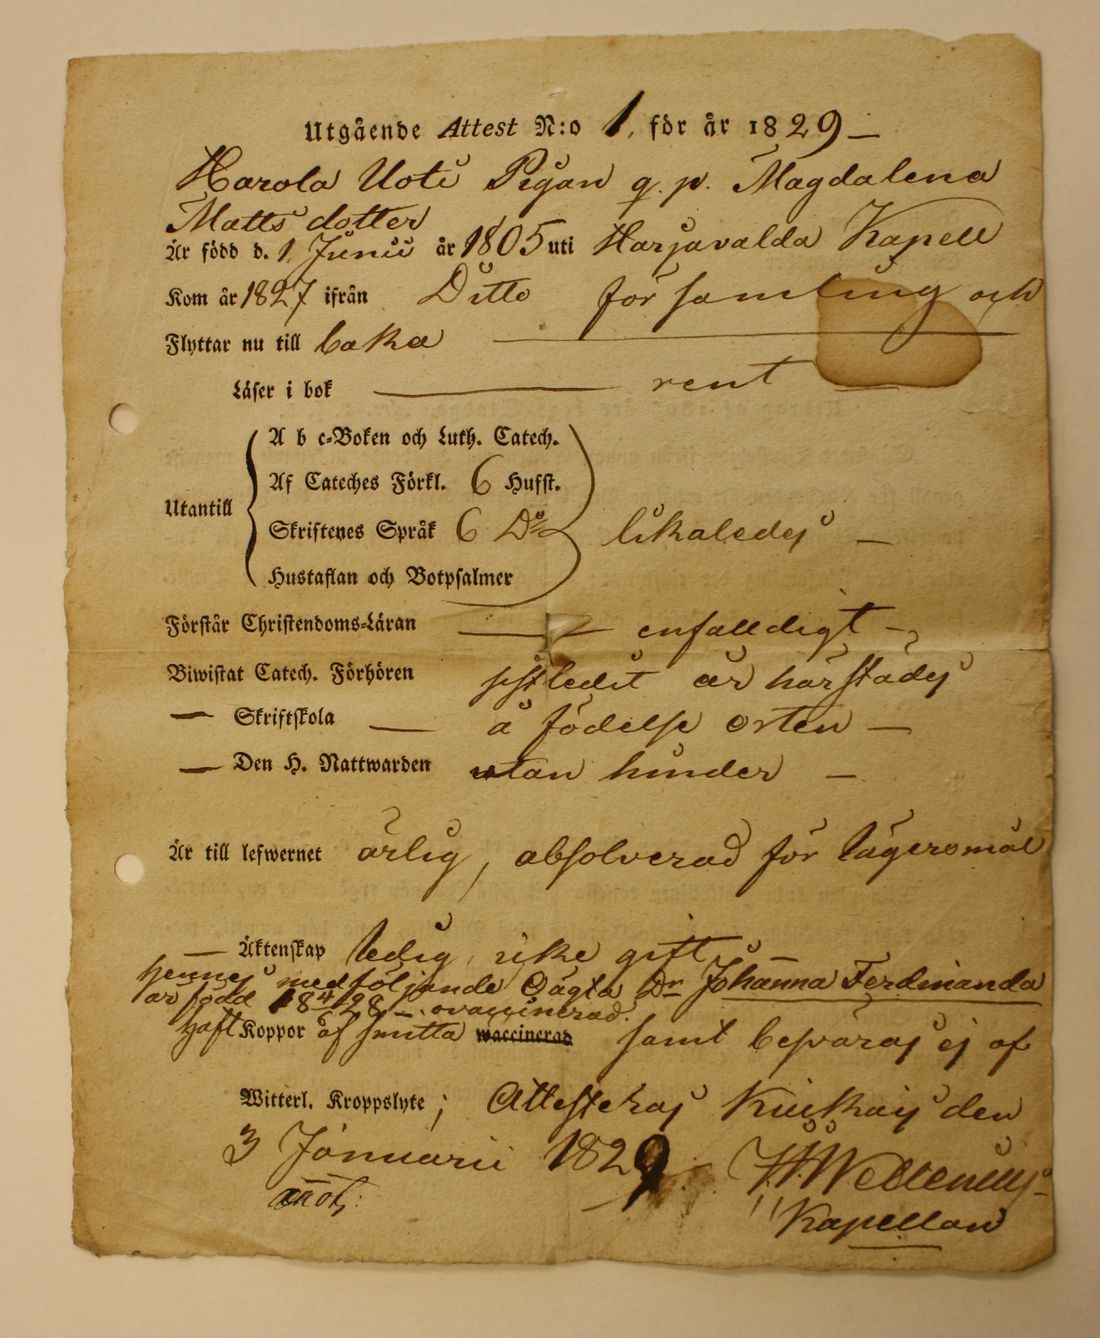 Utgående Attest N:o 1. för år 1829 —
Harola Uoti Pigan q. p. Magdalena
Matts dotter
Är född d. 1 Junii år 1805 uti Harjavalda Kapell
Kom år 1827 ifrån Ditto församling och
Flyttar nu till baka —
Läser i bok — rent —
A b c-Boken och Luth. Catech.
Af Cateches Förkl. 6 Hufst.
Utantill
Skriftenes Språk 6 Do likaledes —
Hustaflan och Botpsalmer
Förstår Christendoms-Läran — enfalldigt —
Biwistat Catech. Förhören sistledit år härstädes
— Skriftskola — å födelse orten —
— Den H. Nattwarden utan hinder —
Är till lefwernet ärlig, absolverad för lägersmål
— Äktenskap ledig, icke gift
hennes medföljande Oägta Dr Johanna Ferdinanda
är född 18 4/1 28 —. ovaccinerad.
haft Koppor af smitta waccinerad samt besväras ej af
Witterl. Kroppslyte; Attesteras Kiukais den
3 Januarii 1829
Kapellan